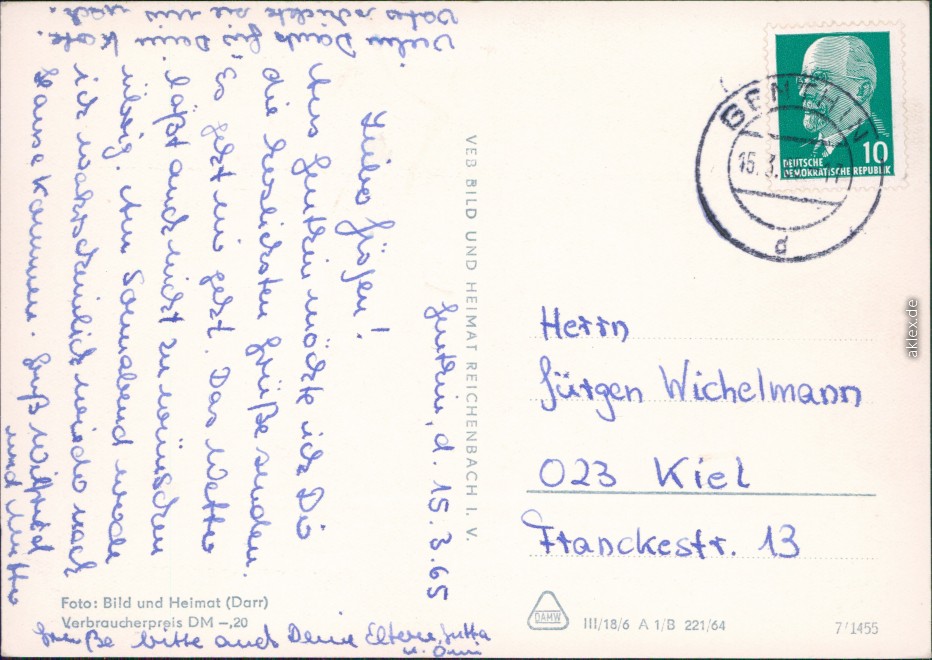 Genthin, d. 15.3.65
Lieber Jürgen!
Aus Genthin möchte ich Dir
die herzlichsten Grüße senden.
Es geht mir gut. Das Wetter
läßt auch nicht zu wünschen
übrig. Am Sonnabend werde
ich wahrscheinlich wieder nach
Hause kommen. Gruß Wilfried
und Mutter
Vielen Dank für Deine Karte.
Vater schickte sie mir nach.
Grüße bitte auch Deine Eltern, Jutta
u. Omi
VEB BILD UND HEIMAT REICHENBACH I. V.
Foto: Bild und Heimat (Darr)
Verbraucherpreis DM –,20
GENTHIN
15.3.
d
10
DEUTSCHE
DEMOKRATISCHE REPUBLIK
Herrn
Jürgen Wichelmann
023 Kiel
Franckestr. 13
DAMW
III/18/6 A 1/B 221/64
7/1455
aklex.de